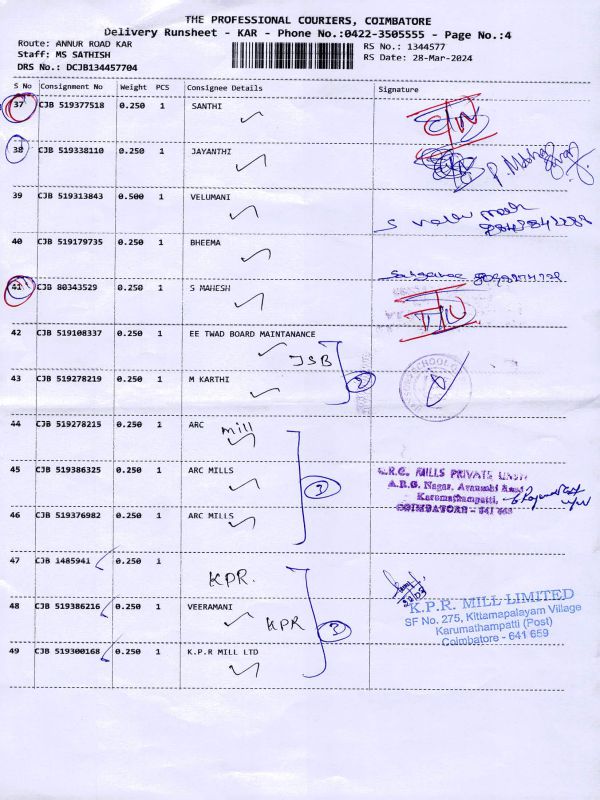 THE PROFESSIONAL COURIERS, COIMBATORE
Delivery Runsheet - KAR - Phone No.:0422-3505555 - Page No.:4
Route: ANNUR ROAD KAR
RS No.: 1344577
Staff: MS SATHISH
RS Date: 28-Mar-2024
DRS No.: DCJB134457704
S No Consignment No Weight PCS Consignee Details Signature
37 CJB 519377518 0.250 1 SANTHI
38 CJB 519338110 0.250 1 JAYANTHI
39 CJB 519313843 0.500 1 VELUMANI
40 CJB 519179735 0.250 1 BHEEMA
41 CJB 80343529 0.250 1 S MAHESH
42 CJB 519108337 0.250 1 EE TWAD BOARD MAINTANANCE
JSB
2
43 CJB 519278219 0.250 1 M KARTHI
44 CJB 519278215 0.250 1 ARC mill
45 CJB 519386325 0.250 1 ARC MILLS
3
A.R.C. MILLS PRIVATE
A.R.C. Nagar,
Karumathampatti,
COIMBATORE - 641
46 CJB 519376982 0.250 1 ARC MILLS
47 CJB 1485941 0.250 1
KPR.
48 CJB 519386216 0.250 1 VEERAMANI
KPR
3
K.P.R. MILL LIMITED
SF No. 275, Kittamapalayam Village
Karumathampatti (Post)
Coimbatore - 641 659
49 CJB 519300168 0.250 1 K.P.R MILL LTD